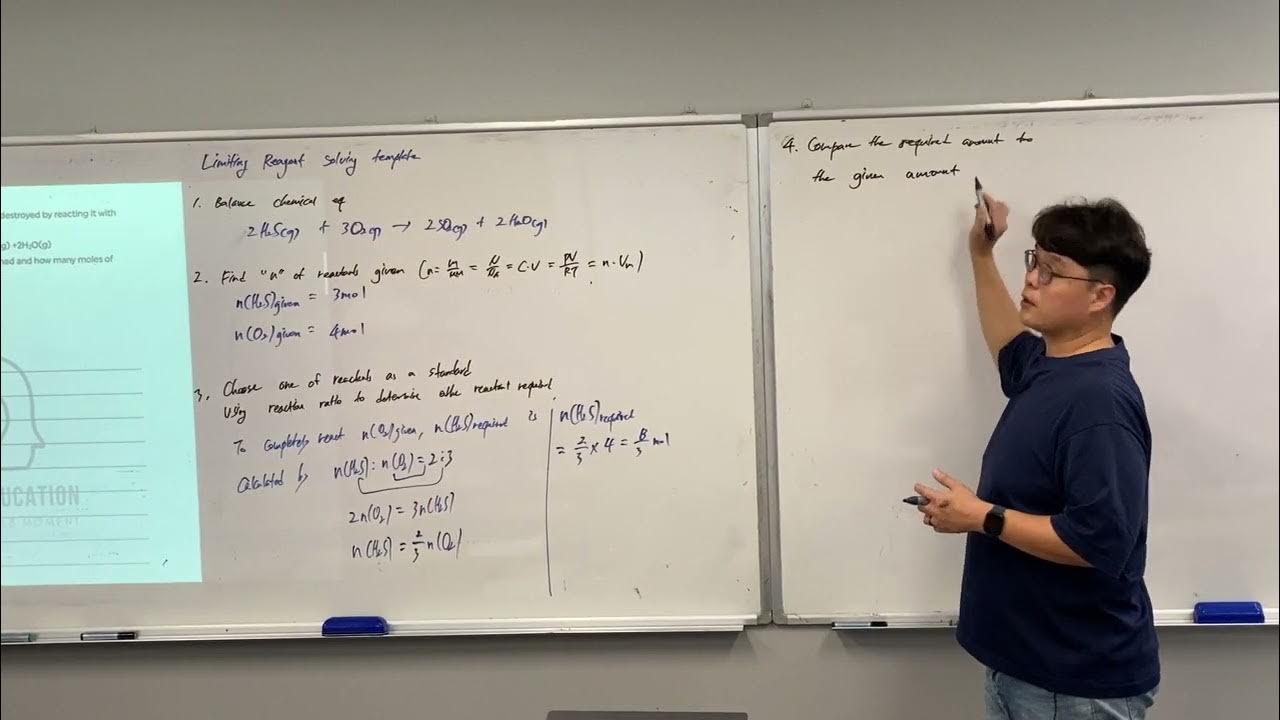 destroyed by reacting it with
g) +2H₂O(g)
ned and how many moles of
UCATION
MOMENT
Limiting Reagent solving template
1. Balance chemical eq
2H₂S(g) + 3O₂(g) → 2SO₂(g) + 2H₂O(g)
2. Find "n" of reactants given (n = m/MM = N/NA = C·V = PV/RT = n·Vm)
n(H₂S)given = 3mol
n(O₂)given = 4mol
3. Choose one of reactants as a standard
Using reaction ratio to determine other reactant required
To completely react n(O₂)given, n(H₂S)required is
calculated by n(H₂S) : n(O₂) = 2:3
2n(O₂) = 3n(H₂S)
n(H₂S) = 2/3 n(O₂)
n(H₂S)required
= 2/3 × 4 = 8/3 mol
4. Compare the required amount to
the given amount